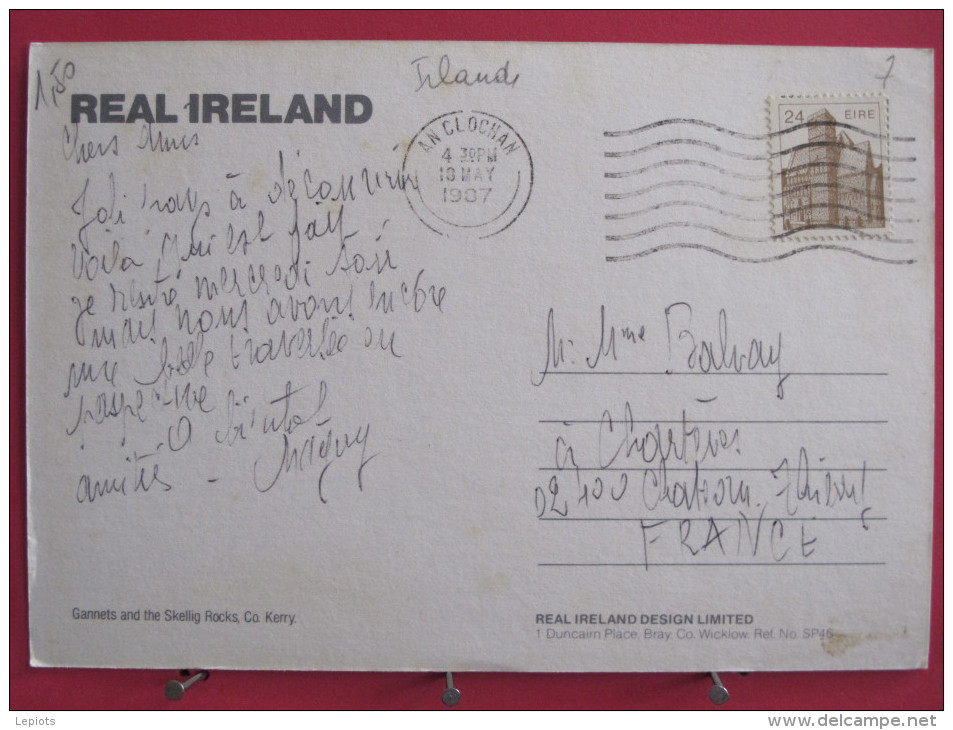 1,50
Irlande
7
REAL IRELAND
AN CLOCHAN
4 30PM
18 MAY
1987
24 EIRE
Chers Amis
Joli pays à découvrir
Voilà qui est fait
je rentre mercredi soir
mais nous avons encore
une belle traversée en
perspective
A bientôt
amitiés -
M. Mme Balvay
à Chartèves
02400 Chateau Thierry
FRANCE
Gannets and the Skellig Rocks, Co. Kerry.
REAL IRELAND DESIGN LIMITED
1 Duncairn Place, Bray, Co. Wicklow. Ref. No. SP46
Lepiots
www.delcampe.net